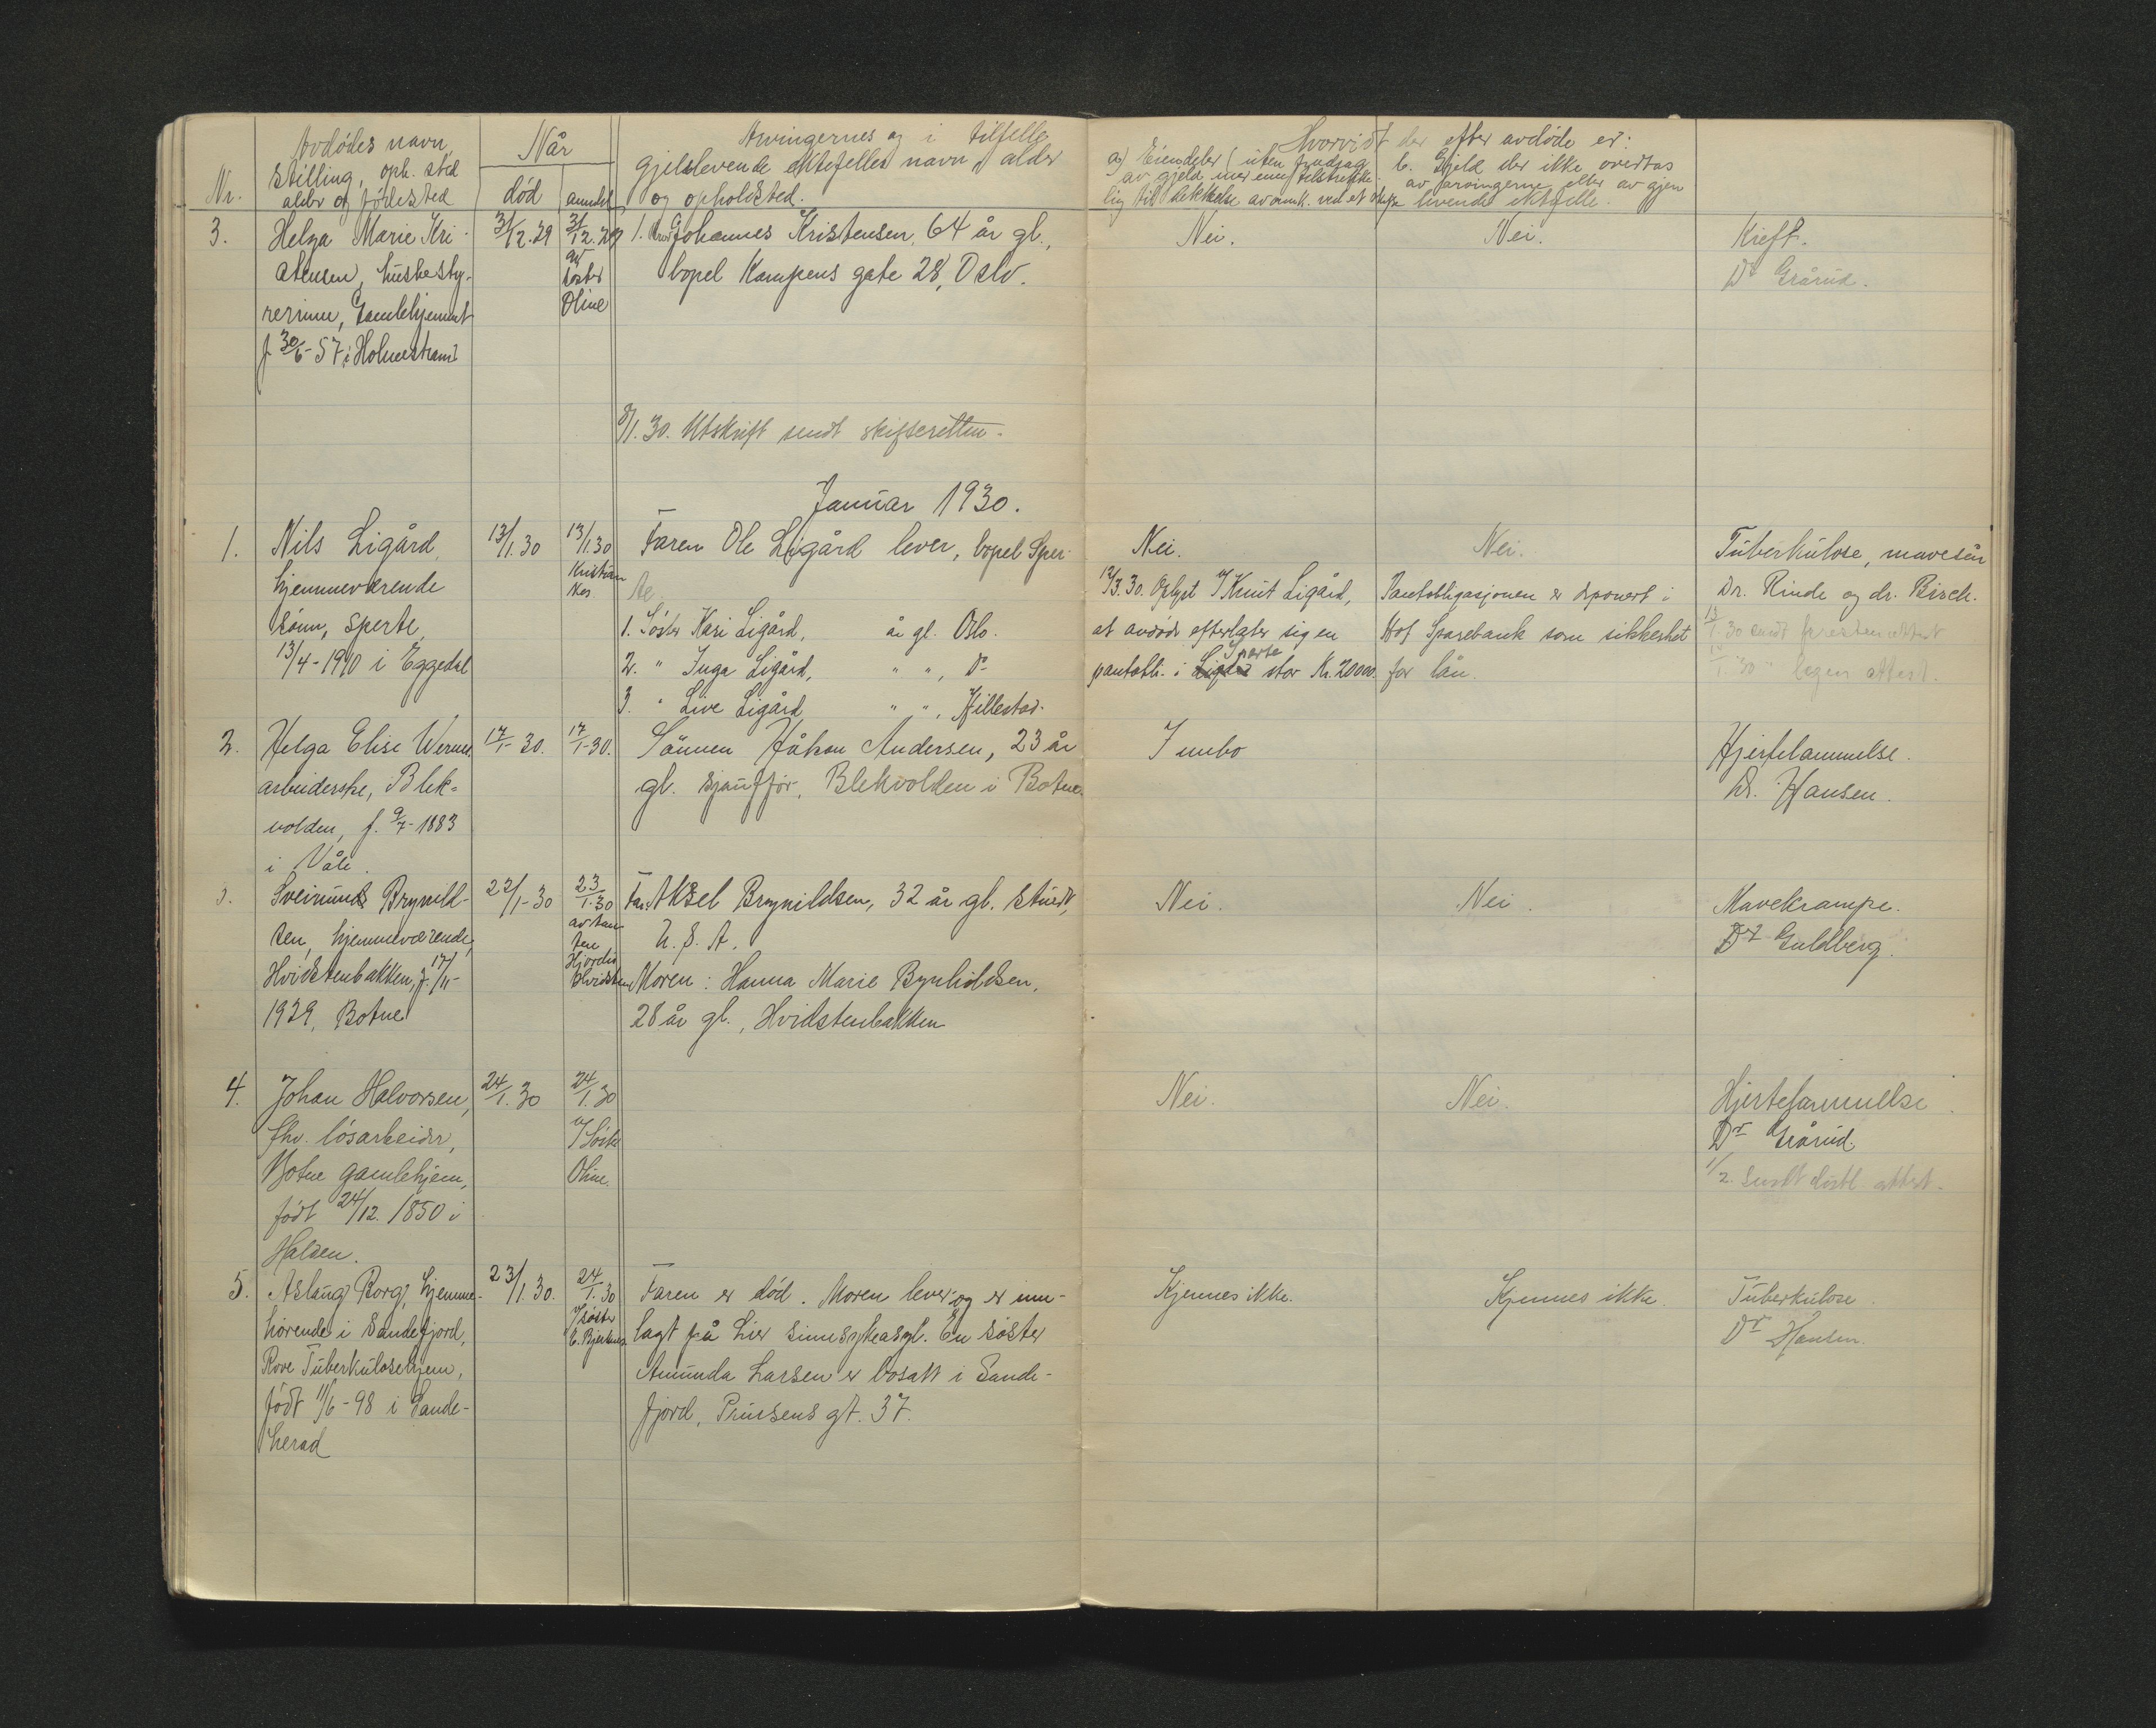 Nr.
Avdödes navn,
stilling, oph. sted
alder og födested
Når
död
anmeldt
Arvingernes og i tilfelle
gjenlevende ektefelles navn, alder
og opholdsted.
Hvorvidt der efter avdöde er:
a) Eiendeler (uten fradrag
av gjeld mer enn tilstrekke-
lig til dekkelse av omk. ved et skifte
b. Gjeld der ikke overtas
av arvingerne eller av gjen
levende ektefelle.
3.
Helga Marie Kri-
stensen, husbesty-
rerinne, Gamlehjemmet
f. 30/6-57 i Holmestrand
31/12.29
31/12.29
av
söster
Oline
1. Johannes Kristensen, 64 år gl.,
bopel Kampens gate 28, Oslo.
Nei.
Nei.
Kreft.
Dr Grårud.
8/1.30. Utskrift sendt skifteretten.
Januar 1930.
1.
Nils Ligård,
hjemmeværende
sönn, Sperte,
13/4-1910 i Eggedal
13/1.30
13/1.30
Kristian
Nes
Faren Ole Ligård lever, bopel Sper-
te.
1. Söster Kari Ligård, år gl. Oslo.
2. " Inga Ligård, " ", do
3. " Live Ligård " ", Hillestad.
Nei.
12/3.30. Oplyst v/ Knut Ligård,
at avdöde efterlater sig en
Sperte
pantobli. i Ligård stor Kr. 20000.
Nei.
Pantobligasjonen er deponert i
Hof Sparebank som sikkerhet
for lån.
Tuberkulose, mavesår
Dr. Rinde og dr. Bisch.
13/1 30 sendt presten attest
1.30 " legens attest.
2.
Helga Elise Werner
arbeiderske, Blek-
volden, f. 9/7-1883
i Våle.
17/1-30.
17/1-30.
Sönnen Håkon Andersen, 23 år
gl. sjaufför, Blekvolden i Botne.
Innbo
Hjertelammelse.
Dr. Hansen.
3.
Sveinung Brynild-
sen, hjemmeværende,
Hvidstenbakken, f. 17/11-
1929, Botne
22/1-30
23/1.30
av tan
ten
Hjördis
Hvidsten
Far: Aksel Brynildsen, 32 år gl. stuert,
U. S. A.
Moren: Hanna Marie Bynhildsen,
28 år gl., Hvidstenbakken
Nei.
Nei.
Mavekrampe.
Dr Guldberg.
4.
Johan Halvorsen,
fhv. lösarbeider,
Botne gamlehjem,
födt 24/12. 1850 i
Halsen.
24/1.30
24/1.30
v/ Söster
Oline.
Nei.
Nei.
Hjertelammelse.
Dr Grårud.
1/2. Sendt distl. attest.
5.
Aslaug Borg, hjemme-
hörende i Sandefjord,
Rove Tuberkulosehjem,
födt 11/6-98 i Sande-
herad
23/1.30.
24/1.30
v/ söster
E. Bjerknes
Faren er död. Moren lever og er inn-
lagt på Lier sinnsykeasyl. En söster
Amunda Larsen er bosatt i Sande-
fjord, Prinsens gt. 37.
Kjennes ikke.
Kjennes ikke.
Tuberkulose.
Dr Hansen.